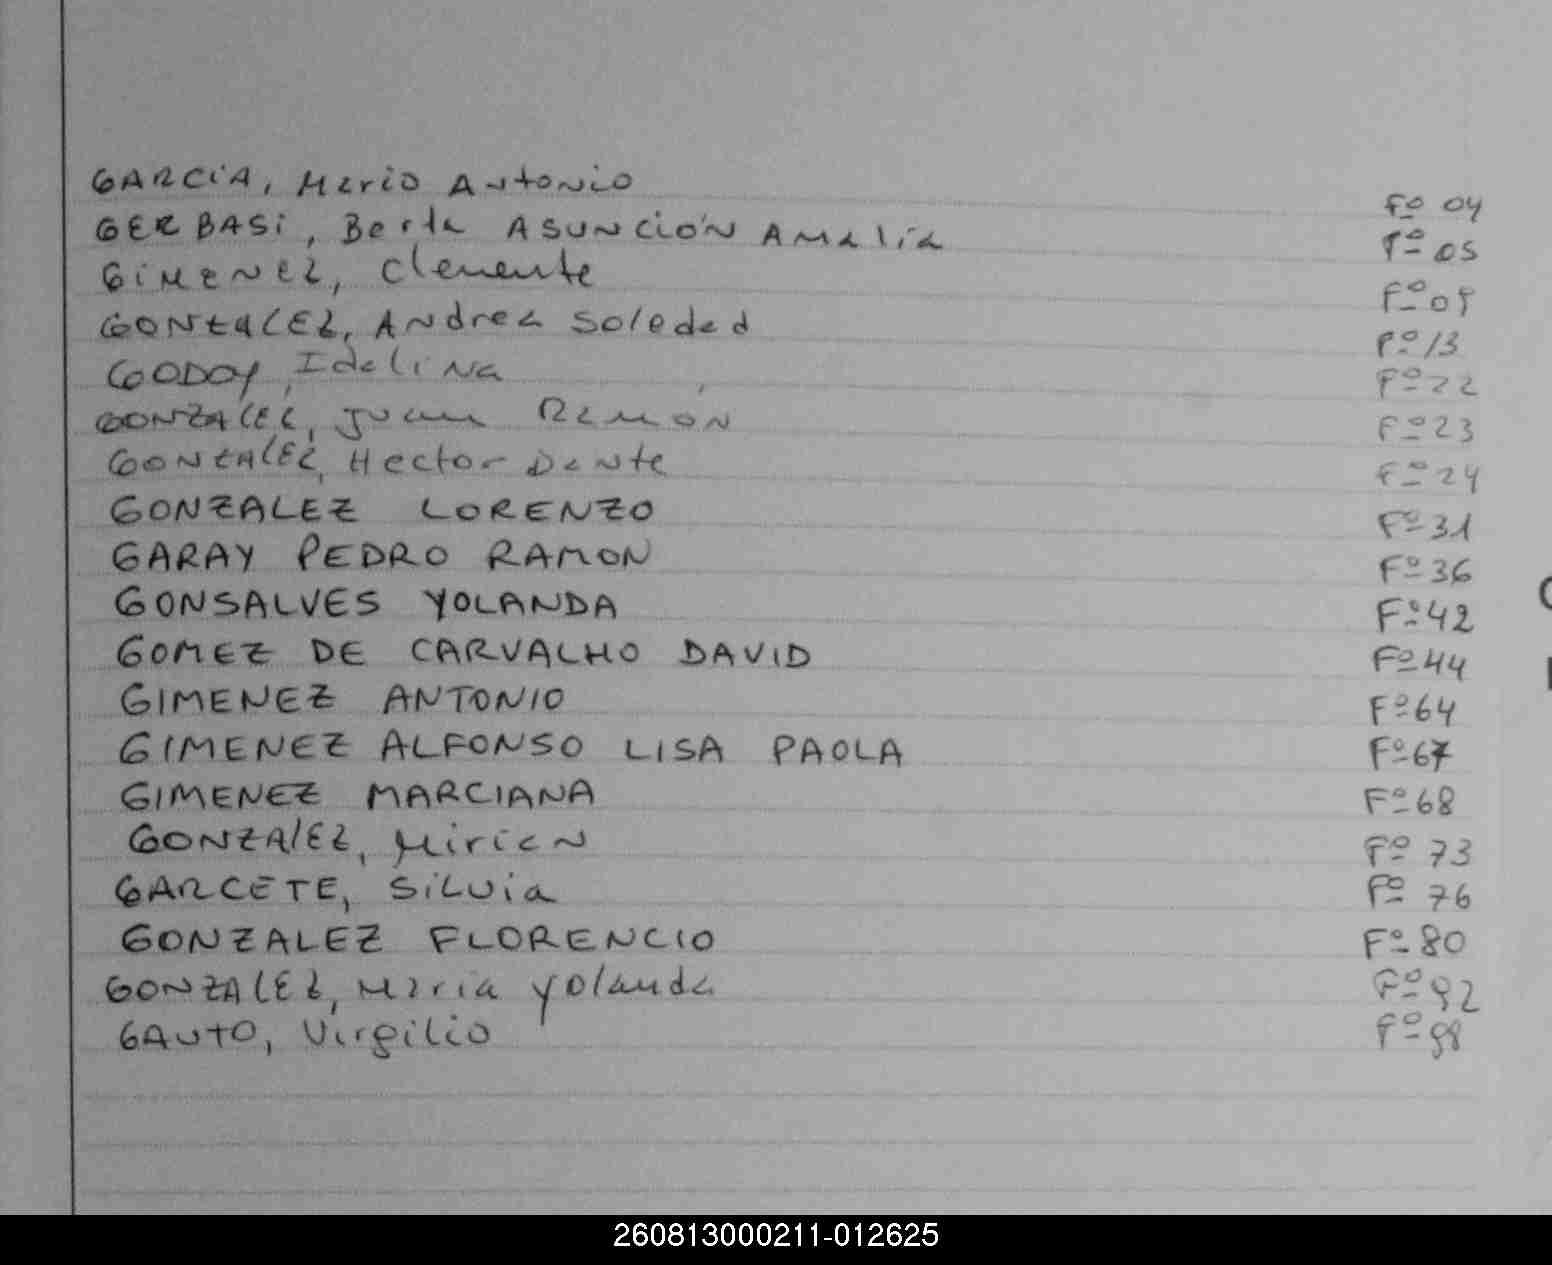 GARCIA, Mario Antonio Fº 04
GERBASI, Berta ASUNCIÓN AMALIA Fº 05
GIMENEZ, Clemente Fº 09
GONZALEZ, Andrea Soledad Fº 13
GODOY, Idelina Fº 22
GONZALEZ, Juan RAMÓN Fº 23
GONZALEZ, Hector Dante Fº 24
GONZALEZ LORENZO Fº 31
GARAY PEDRO RAMON Fº 36
GONSALVES YOLANDA Fº 42
GOMEZ DE CARVALHO DAVID Fº 44
GIMENEZ ANTONIO Fº 64
GIMENEZ ALFONSO LISA PAOLA Fº 67
GIMENEZ MARCIANA Fº 68
GONZALEZ, Mirian Fº 73
GARCETE, SILVIA Fº 76
GONZALEZ FLORENCIO Fº 80
GONZALEZ, Maria Yolanda Fº 92
GAUTO, Virgilio Fº 98
260813000211-012625